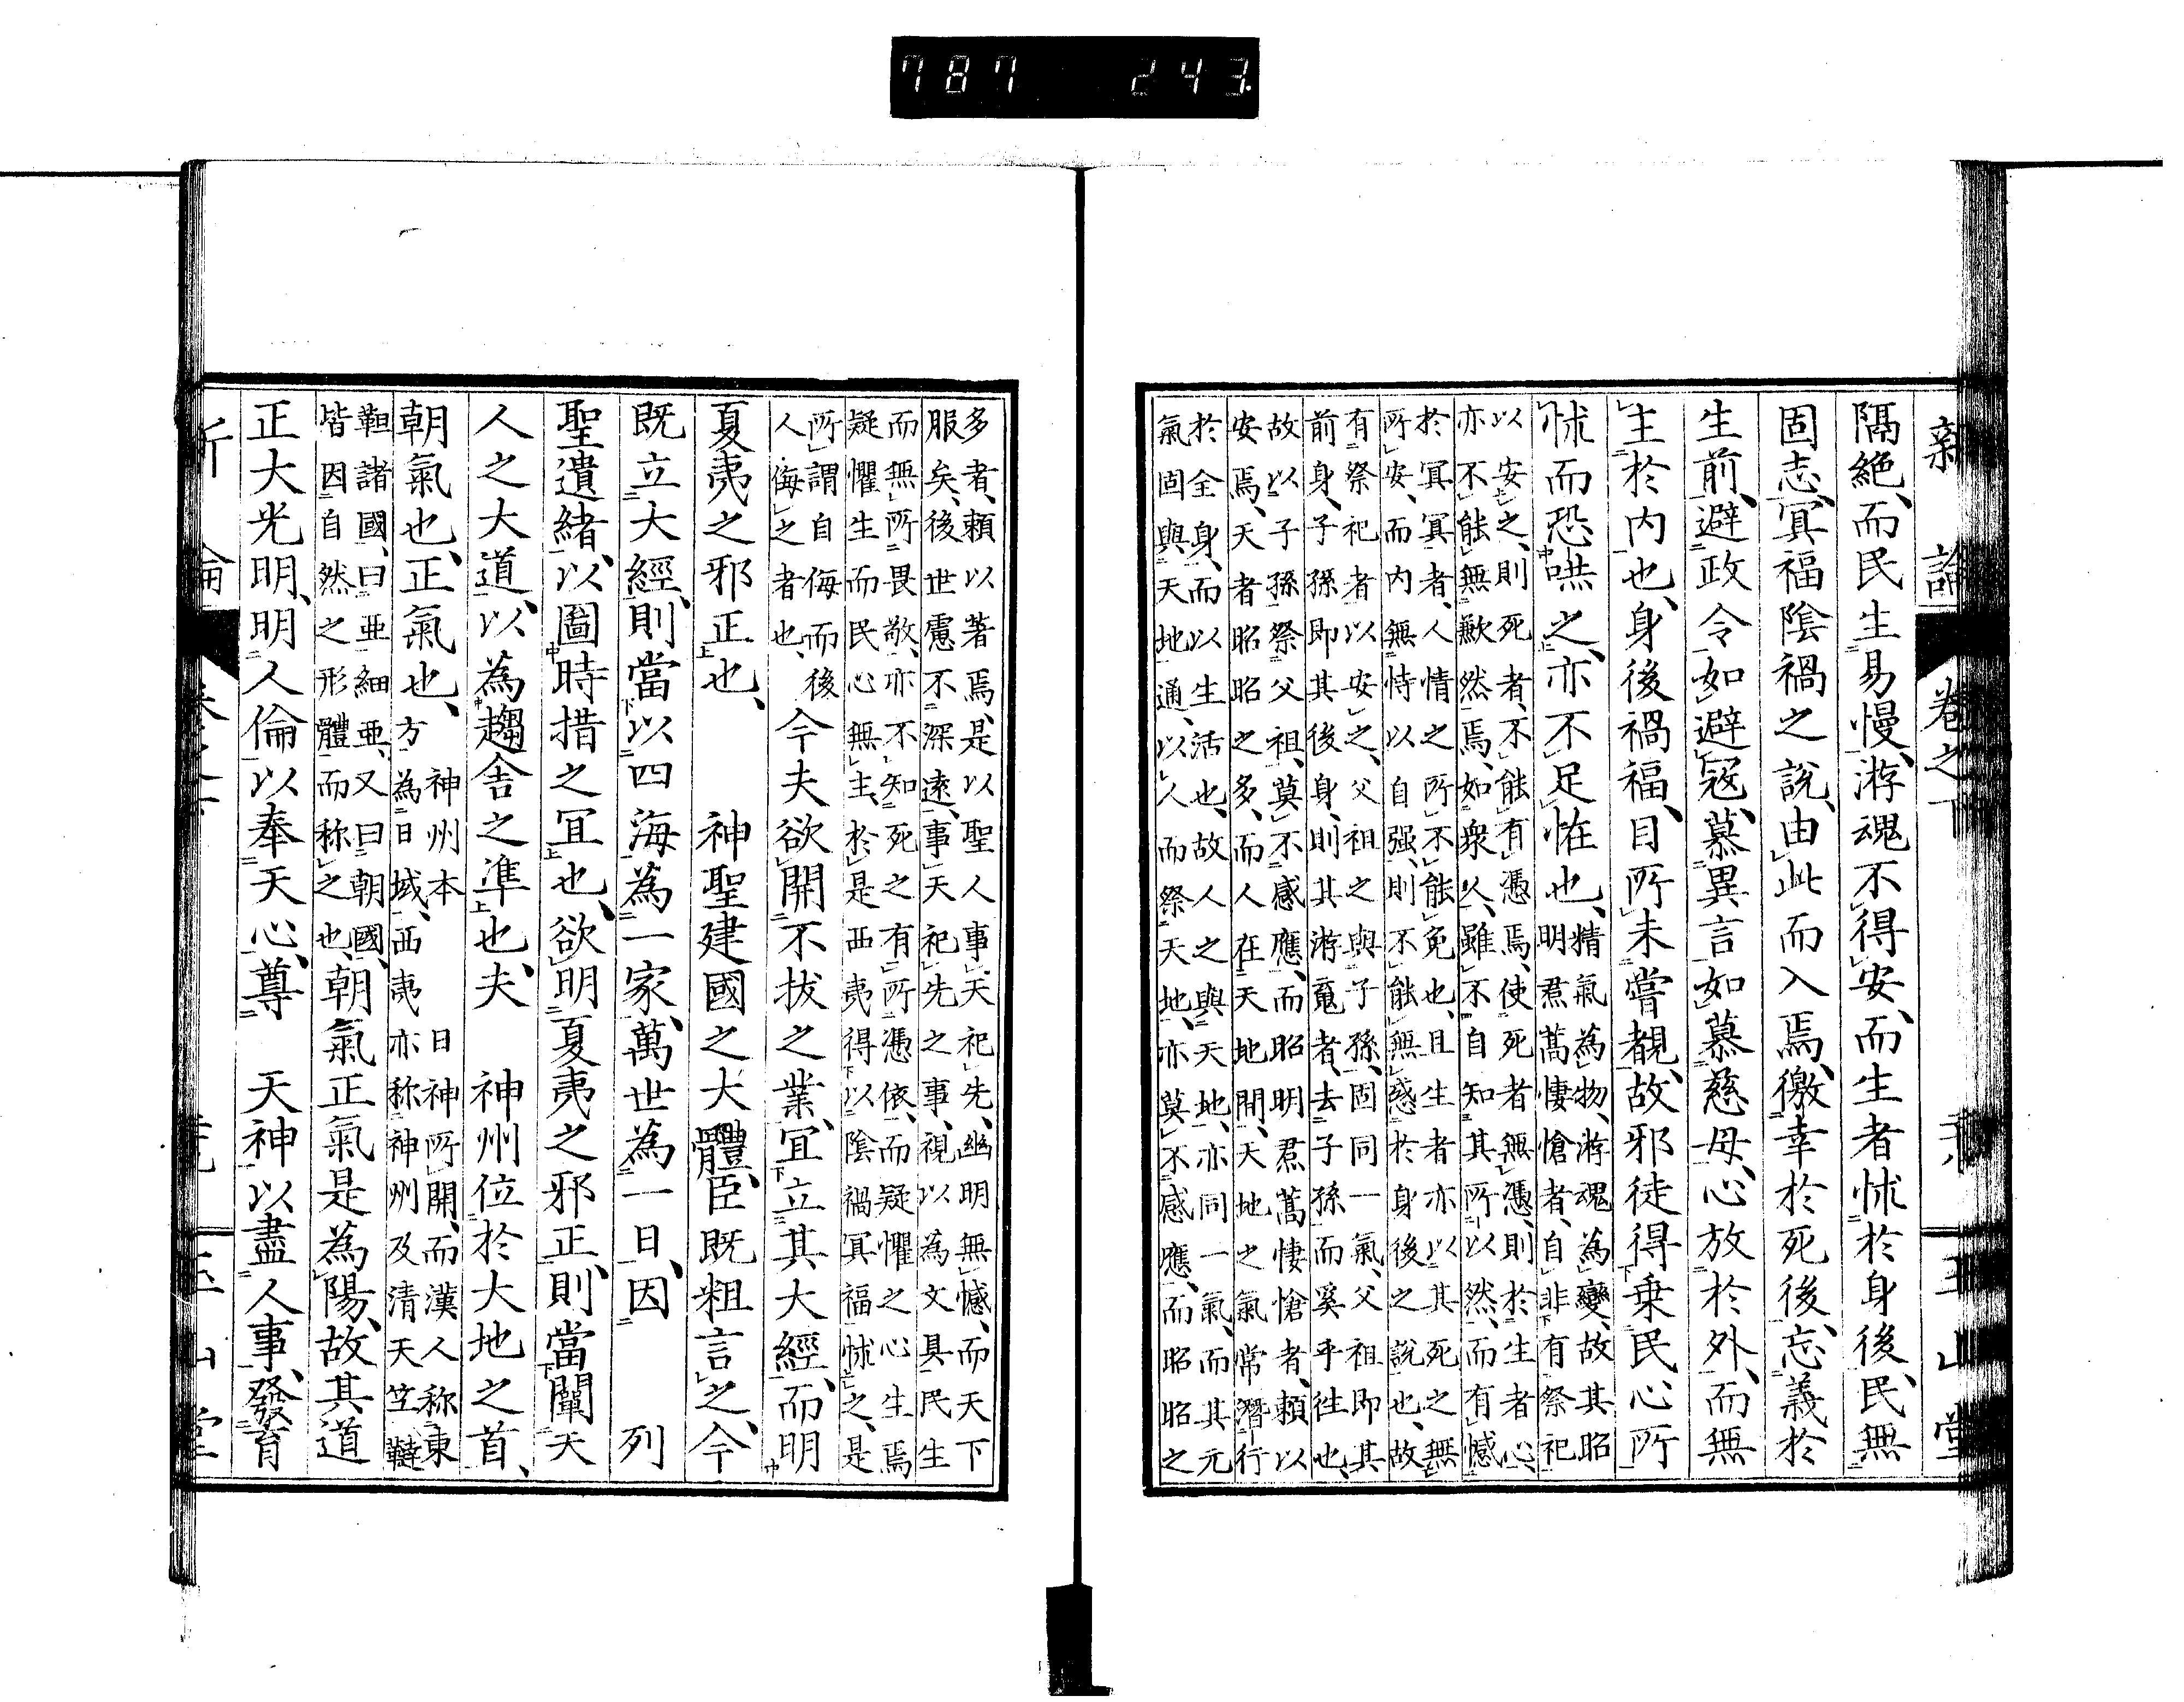 787 243
新論 卷之下 玉山堂
隔絕、而民生易慢、游魂不得安、而生者怵於身後、民無
固志、冥福陰禍之說、由此而入焉、徼幸於死後、忘義於
生前、避政令如避寇、慕異言如慕慈母、心放於外、而無
主於內也、身後禍福、目所未嘗覩、故邪徒得乗民心所
怵而恐嚇之、亦不足恠也、
精氣為物、游魂為變、故其昭
明焄蒿悽愴者、自非有祭祀
以安之、則死者不能有憑焉、使死者無憑、則於生者心、
亦不能無歉然焉、如衆人、雖不自知其所以然、而有憾
於冥冥者、人情之所不能免也、且生者亦以其死之無
所安、而內無恃以自强、則不能無惑於身後之說也、故
有祭祀者以安之、父祖之與子孫、固同一氣、父祖即其
前身、子孫即其後身、則其游䰟者、去子孫而奚乎往也、
故以子孫祭父祖、莫不感應、而昭明焄蒿悽愴者、賴以
安焉、天者昭昭之多、而人在天地間、天地之氣常潛行
於全身、而以生活也、故人之與天地、亦同一氣、而其元
氣固與天地通、以人而祭天地、亦莫不感應、而昭昭之
多者、賴以著焉、是以聖人事天祀先、幽明無憾、而天下
服矣、後世慮不深遠、事天祀先之事、視以為文具、民生
而無所畏敬、亦不知死之有所憑依、而疑懼之心生焉
疑懼生而民心無主、於是西夷得以陰禍冥福怵之、是
所謂自侮而後
人侮之者也、
今夫欲開不拔之業、宜立其大經、而明
夏夷之邪正也、 神聖建國之大體、臣既粗言之、今
既立大經、則當以四海為一家、萬世為一日、因 列
聖遺緒、以圖時措之宜也、欲明夏夷之邪正、則當闡天
人之大道、以為趨舍之準也、夫 神州位於大地之首、
朝氣也、正氣也、
神州本 日神所開、而漢人称東
方為日域、西夷亦称神州及清天竺韃
靼諸國、曰亜細亜、又曰朝國、
皆因自然之形體而称之也、
朝氣正氣是為陽、故其道
正大光明、明人倫以奉天心、尊 天神以盡人事、發育